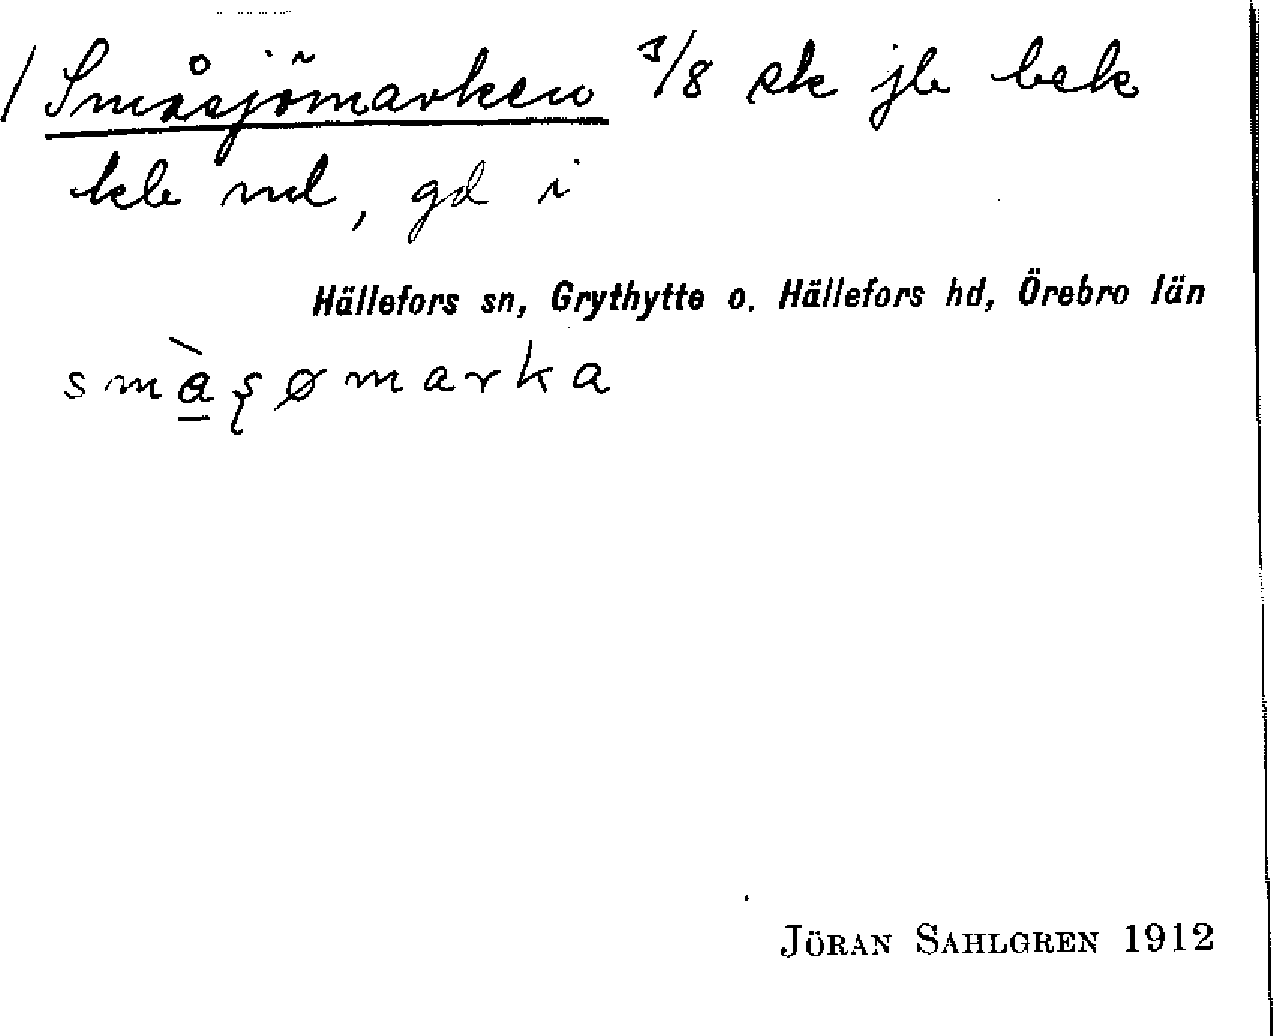 / Småsjömarken 3/8 sk jb bek
kb nd, gd i
Hällefors sn, Grythytte o. Hällefors hd, Örebro län
smàşømarka
JÖRAN SAHLGREN 1912